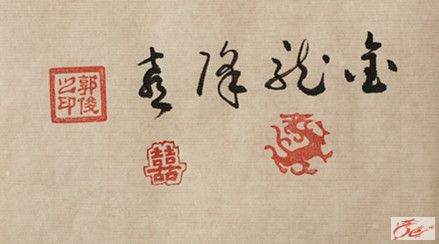 金龙降喜
郭俊之印
囍